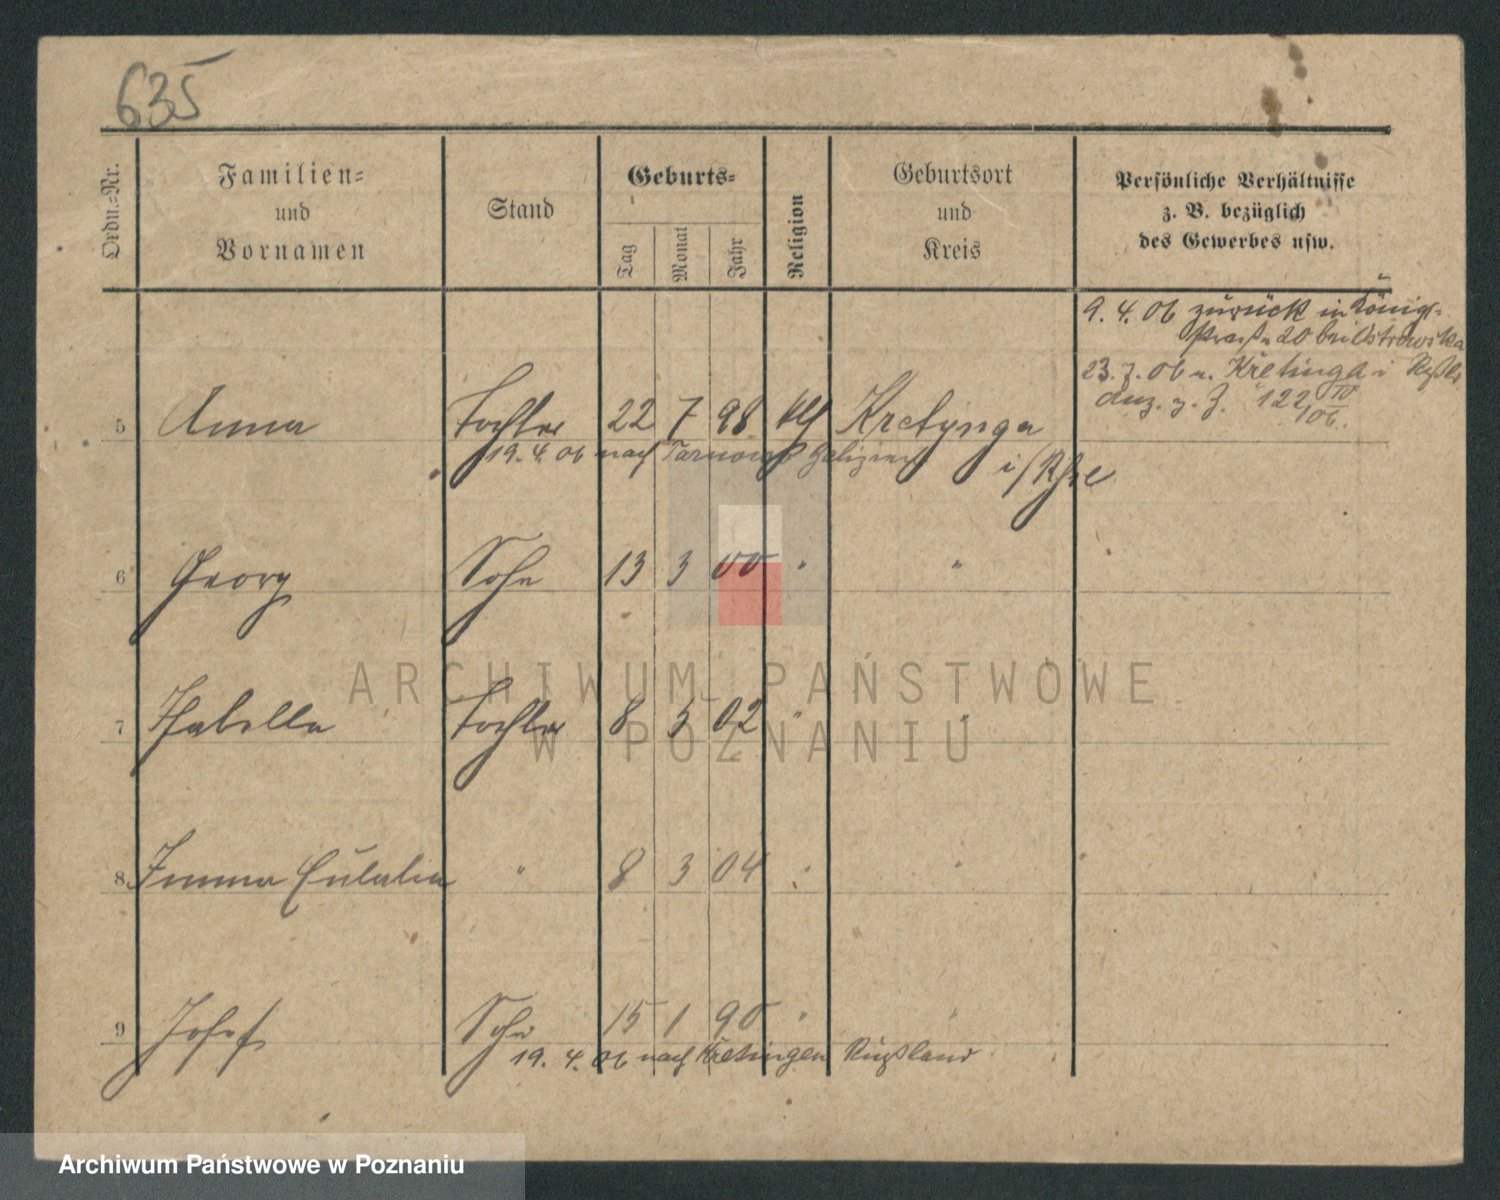 635
Ordn.=Nr.
Familien=
und
Vornamen
Stand
Geburts=
Tag
Monat
Jahr
Religion
Geburtsort
und
Kreis
Persönliche Verhältnisse
z. B. bezüglich
des Gewerbes usw.
9. 4. 06 zurück in Königs-
straße 20 bei Ostrowska
23. 7. 06 n. Kretinga i Rßld
122 IV/06.
5 Anna Tochter 22 7 98 Kretynga
19. 4. 06 nach Tarnow Galizien
i/
6 Georg Sohn 13 3 00 " "
7 Isabella Tochter 8 5 02 " "
8 Emma Eulalia " 8 3 04 " "
9 Josef Sohn 15 1 90 " "
19. 4. 06 nach Kretingen Rußland
ARCHIWUM PAŃSTWOWE
W POZNANIU
Archiwum Państwowe w Poznaniu